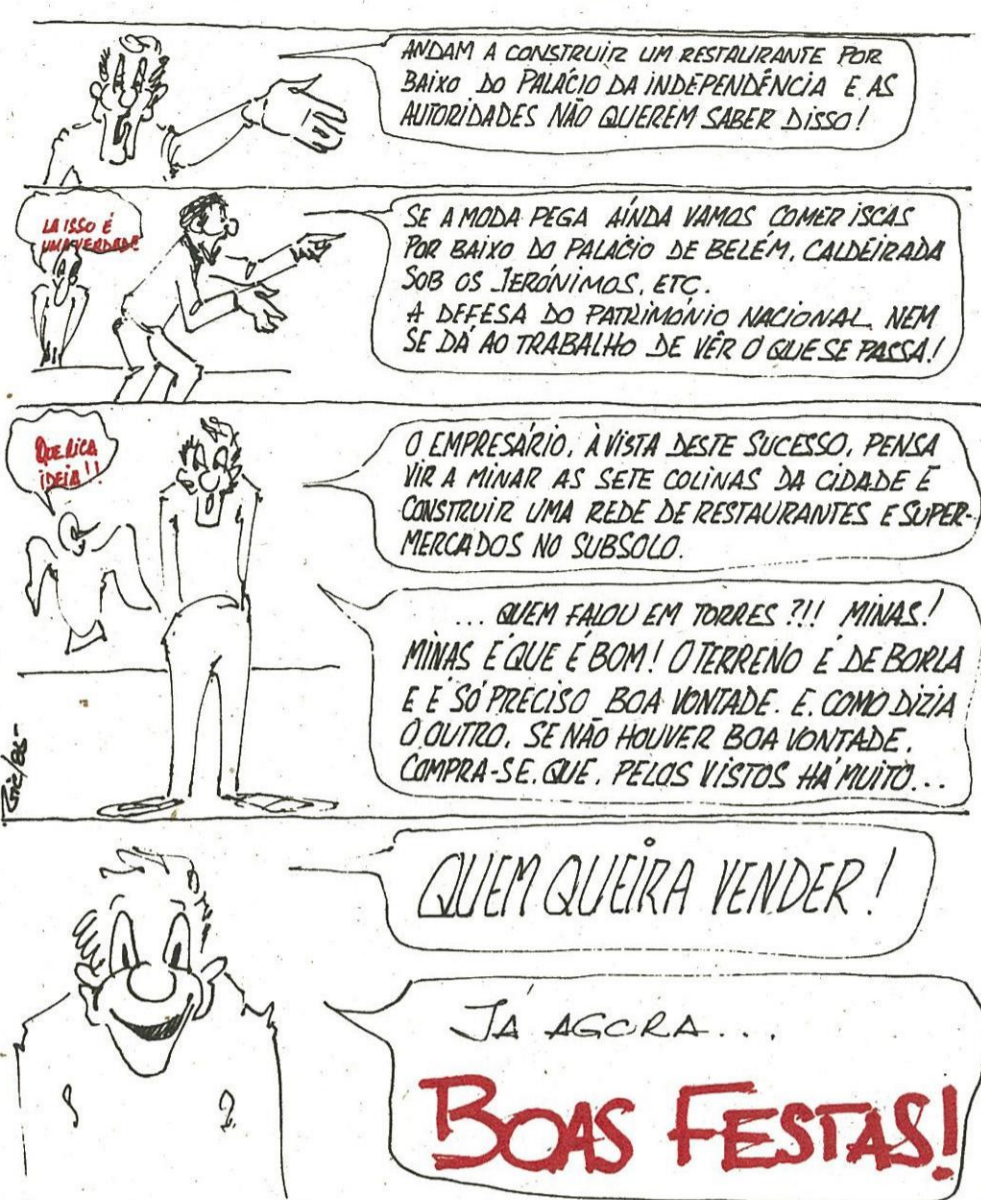 ANDAM A CONSTRUIR UM RESTAURANTE POR
BAIXO DO PALÁCIO DA INDEPENDÊNCIA E AS
AUTORIDADES NÃO QUEREM SABER DISSO!
LA ISSO É
UMA VERDADE
SE A MODA PEGA AINDA VAMOS COMER ISCAS
POR BAIXO DO PALÁCIO DE BELÉM, CALDEIRADA
SOB OS JERÓNIMOS, ETC.
A DEFESA DO PATRIMÓNIO NACIONAL NEM
SE DÁ AO TRABALHO DE VÊR O QUE SE PASSA!
QUE RICA
IDEIA!!
O EMPRESÁRIO, À VISTA DESTE SUCESSO, PENSA
VIR A MINAR AS SETE COLINAS DA CIDADE E
CONSTRUIR UMA REDE DE RESTAURANTES E SUPER-
MERCADOS NO SUBSOLO.
... QUEM FALOU EM TORRES?!!! MINAS!
MINAS É QUE É BOM! O TERRENO É DE BORLA
E É SÓ PRECISO BOA VONTADE. E, COMO DIZIA
O OUTRO, SE NÃO HOUVER BOA VONTADE,
COMPRA-SE. QUE, PELOS VISTOS HÁ MUITO...
/85-
QUEM QUEIRA VENDER!
JÁ AGORA...
BOAS FESTAS!